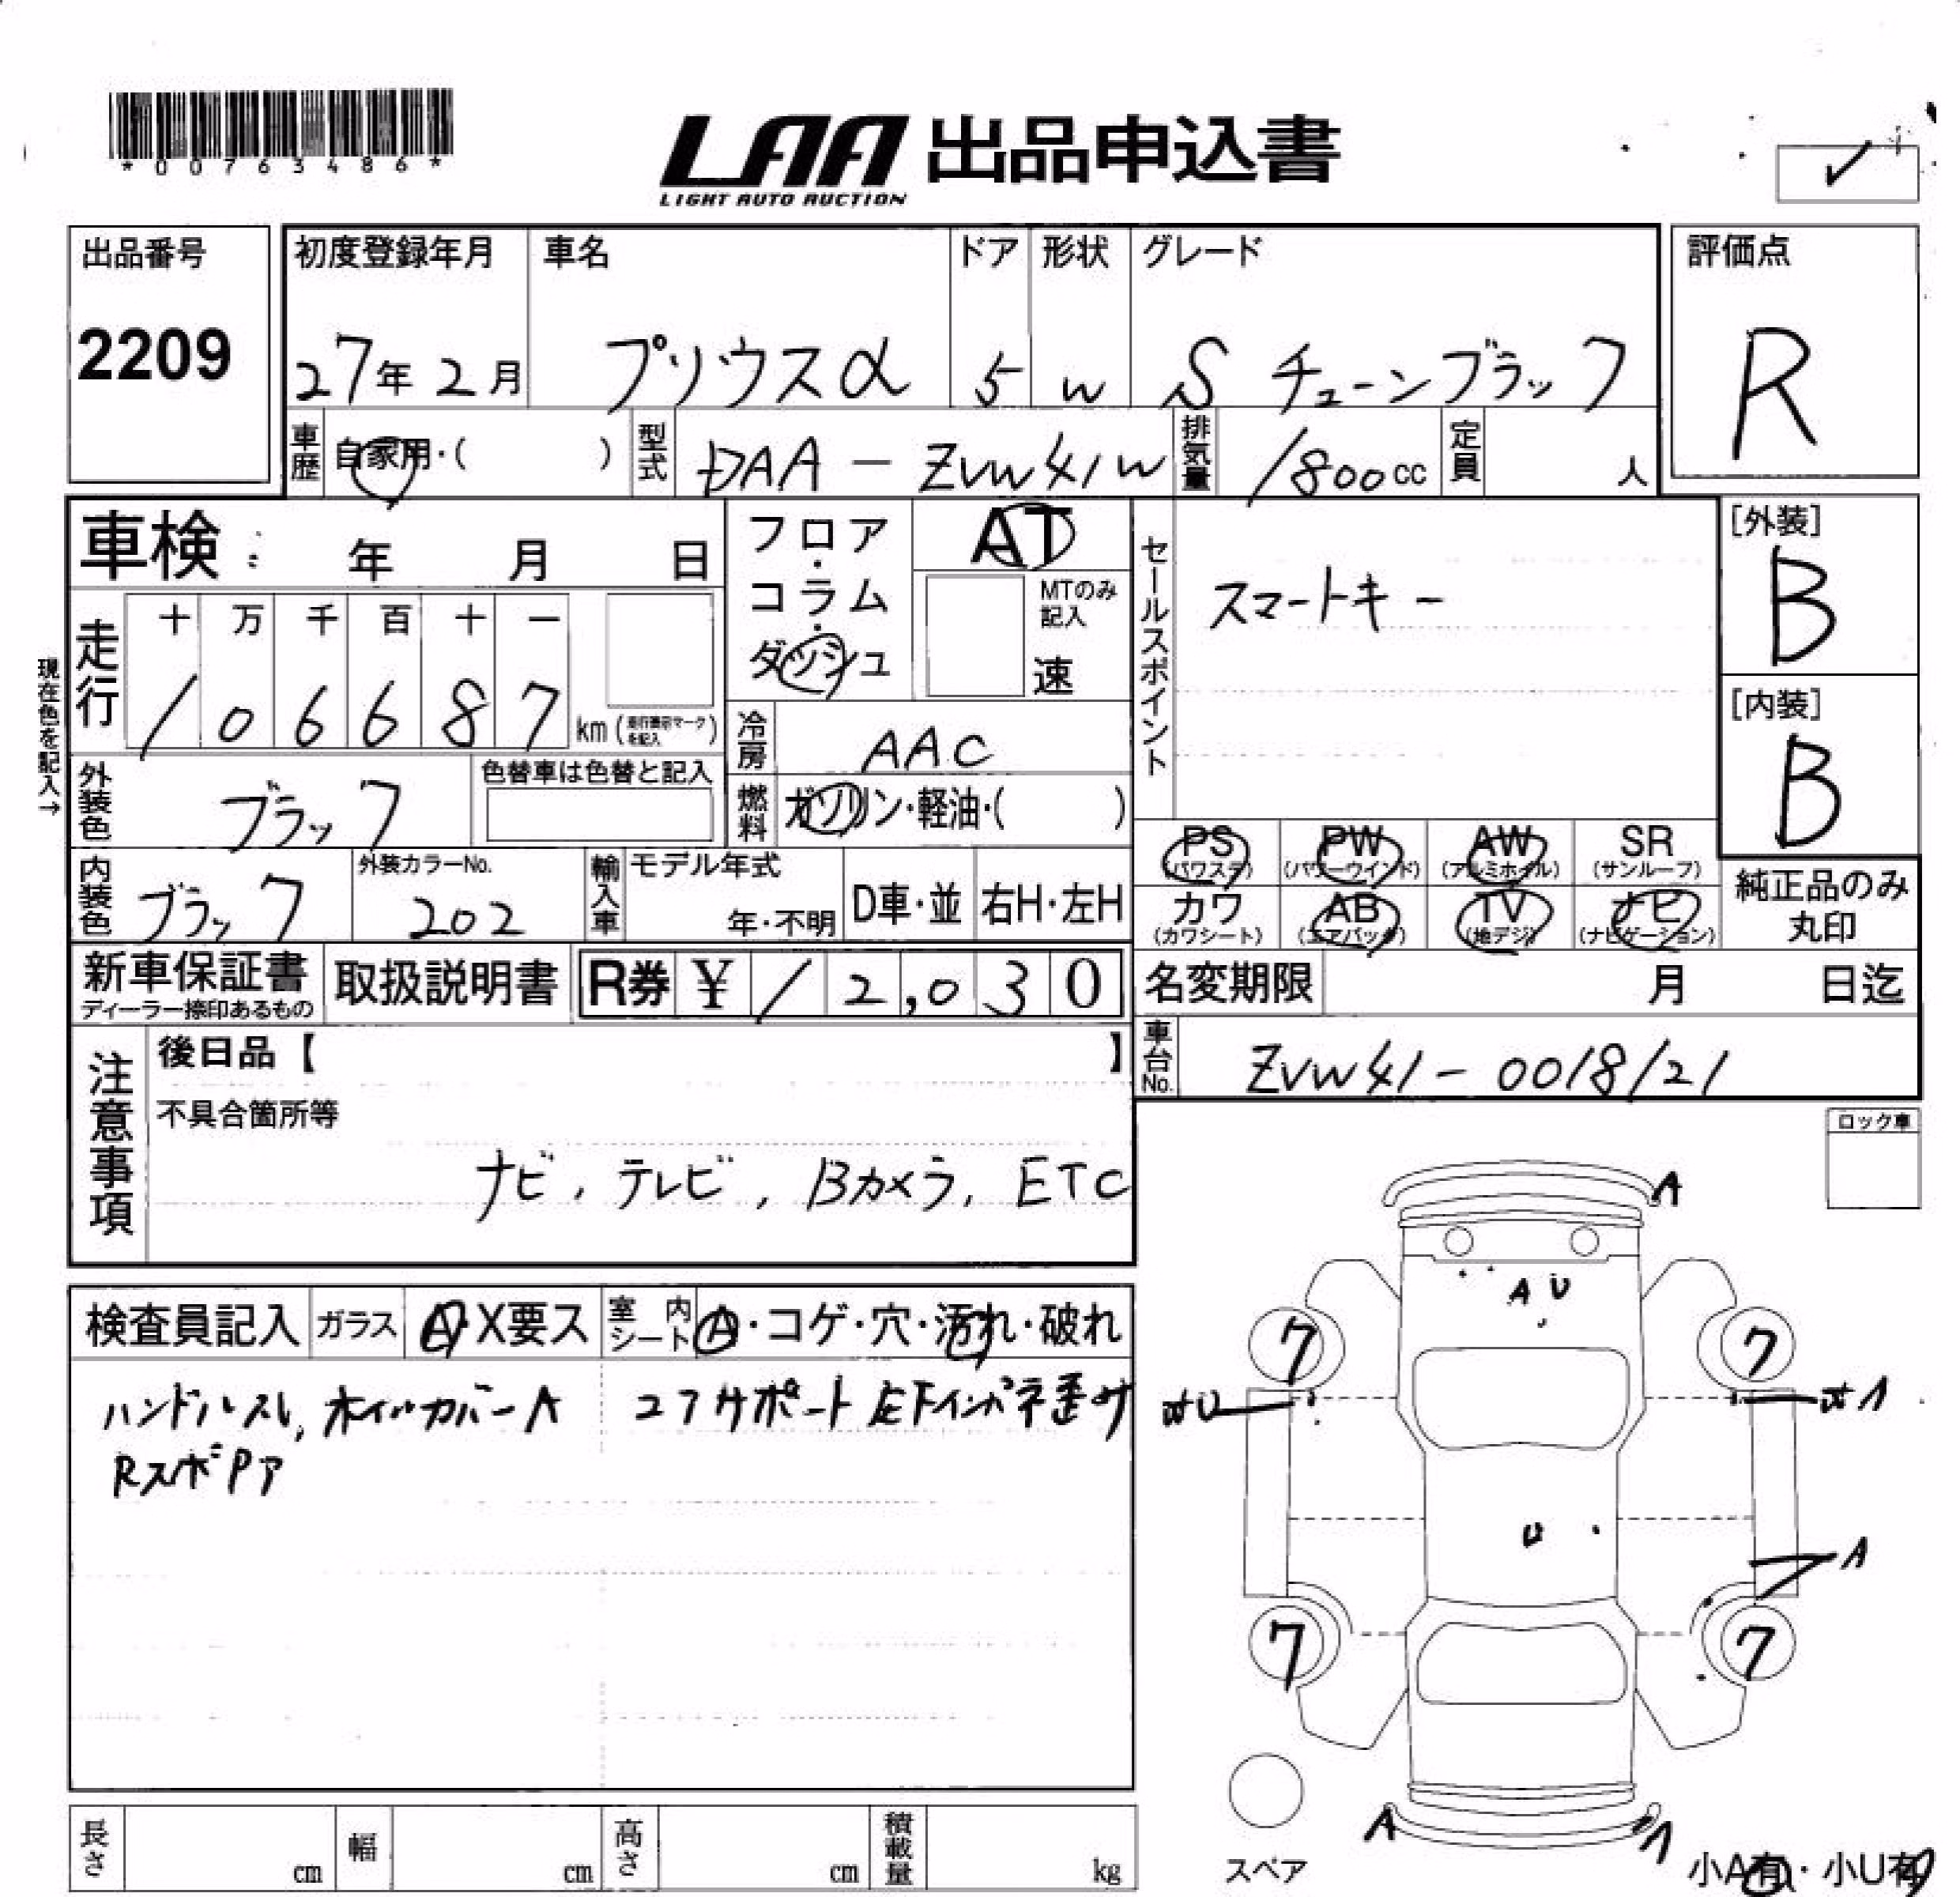 *00763486*
LAA 出品申込書
LIGHT AUTO AUCTION
✓
出品番号
2209
初度登録年月
27年 2月
車名
プリウスα
ドア
5
形状
W
グレード
S チューンブラック
評価点
R
車歴 自家用・( )
型式 DAA-ZVW41W
排気量 1800cc
定員 人
車検 年 月 日
フロア・コラム・ダッシュ
AT
MTのみ記入
速
セールスポイント
スマートキー
[外装]
B
[内装]
B
現在色を記入→
走行
十 万 千 百 十 一
1 0 6 6 8 7 km (走行表示マークを記入)
冷房 AAC
外装色 ブラック
色替車は色替と記入
燃料 ガソリン・軽油・( )
PS (パワステ)
PW (パワーウインド)
AW (アルミホイル)
SR (サンルーフ)
内装色 ブラック
外装カラーNo.
202
輸入車 モデル年式
年・不明
D車・並
右H・左H
カワ (カワシート)
AB (エアバッグ)
TV (地デジ)
ナビ (ナビゲーション)
純正品のみ
丸印
新車保証書
ディーラー捺印あるもの
取扱説明書
R券 ¥ 12,030
名変期限 月 日迄
車台No. ZVW41-0018121
注意事項
後日品【 】
不具合箇所等
ナビ, テレビ, Bカメラ, ETC
ロック車
検査員記入 ガラス A・X要ス 室内シート A・コゲ・穴・汚れ・破れ
ハンドルスレ, ホイルカバーA
コアサポート左下インパネ歪サ
RスポPア
A
A U
7 7
U
A
7 7
A A
スペア
小A有・小U有
長さ cm
幅 cm
高さ cm
積載量 kg